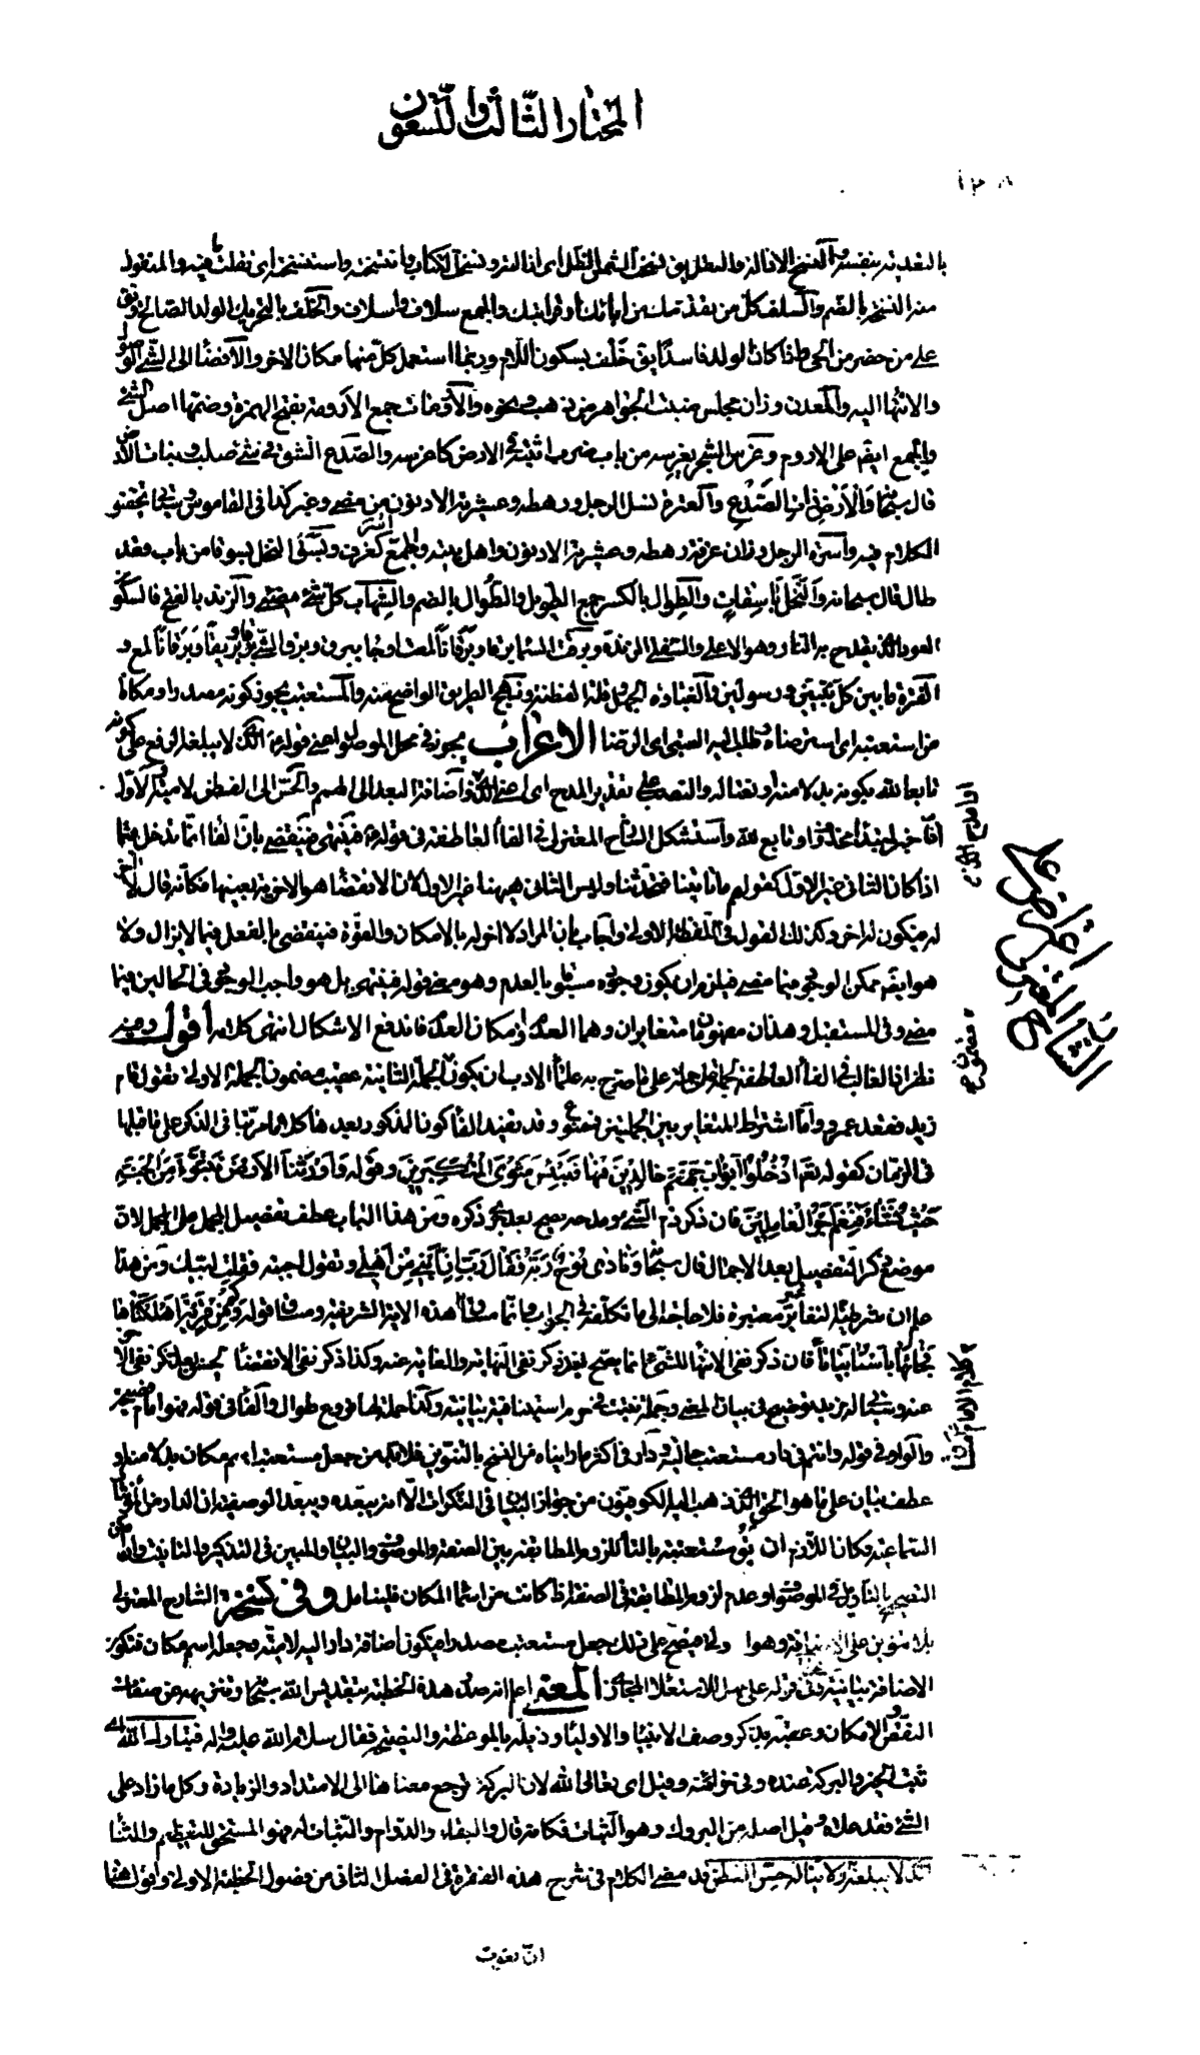 المختار الثالث والتسعون
بالتعدية بنفسه والنسخ الازالة والنقل يق نسخت الشمس الظل اى ازالته ونسخت الكتاب وانتسخته واستنسخته اى نقلت ما فيه والمنقول
منه النسخة بالضم والسلف كل من تقدمك من ابائك او قرابتك والجمع سلاف واسلاف والخلف بالتحريك الولد الصالح وبق
على من حضر من الحى فاذا كان الولد فاسدا يق خلف بسكون اللام وربما استعمل كل منهما مكان الاخر والافضاء الى الشئ الوصول
والانتهاء اليه والمعدن وزان مجلس منبت الجواهر من ذهب ونحوه والارومات جمع الارومة بفتح الهمزة وضمها اصل الشئ
ويجمع ايضا على الاروم وغرس الشجر يغرسه من باب ضرب اثبته فى الارض كاغرسه والصدع الشق فى شئ صلب ونبات الارض
قال سبحانه والارض ذات الصدع والعترة نسل الرجل ورهطه وعشيرته الادنون من مضى وغبر كذا فى القاموس وسياتى تحقيق
الكلام فيه واسرة الرجل وزان غرفة رهطه وعشيرته الادنون واهل بيته والجمع كغرف وبسق النخل بسوقا من باب قعد
طال قال سبحانه والنخل باسقات والطوال بالكسر جمع الطويل والطوال بالضم والشهاب كل شئ مضئ والزند بالفتح فالسكون
العود الذى يقدح به النار وهو الاعلى والسفلى الزندة وبرقت السماء برقا وبرقانا لمعت او جاءت ببرق وبرق الشئ برقا وبريقا وبرقانا لمع و
الفترة ما بين كل نبيين ورسولين والغباوة الجهل وقلة الفطنة ونهج الطريق الواضح منه والمستعتب يجوز كونه مصدرا ومكانا
من استعتبه اى استرضاه وطلب اليه العتبى اى الرضا الاعراب يجوز فى محل الموصول اعنى قوله الذى لا يبلغه الرفع على كونه
تابعا لله بكونه بدلا منه او نعتا له والنصب على تقدير المدح اى اعنى الذى واضافة البعد الى الهمم والحس الى الفطن لامية والاول
اما خبر لمبتدا محذوف او تابع لله واستشكل الشارح المعتزلى فى الفاء العاطفة فى قوله فينتهى فينقضى بان الفاء انما تدخل فيما
اذا كان الثانى غير الاول كقولهم ما تاتينا فتحدثنا وليس الثانى ههنا غير الاول لان الانقضاء هو الاخرية بعينها فكانه قال لا آخر
له فيكون له اخر وكذلك القول فى اللفظة الاولى واجاب بان المراد لا اخر له بالامكان والقوة فينقضى بالفعل فيما لا يزال ولا
هو ايضا ممكن الوجود فيما مضى فيلزم ان يكون وجوده مسبوقا بالعدم وهو معنى قوله فينتهى بل هو واجب الوجود فى الحالين فيما
مضى وفى المستقبل وهذان مفهومان متغايران وهما العدم وامكان العدم فاندفع الاشكال انتهى كلامه اقول وفيه
نظر اذ الغالب فى الفاء العاطفة لجملة على جملة على ما صرح به علماء الادب ان يكون الجملة الثانية عقيب مضمون الجملة الاولى تقول قام
زيد فقعد عمرو واما اشتراط التغاير بين الجملتين فممنوع وقد تفيد الفاء كون المذكور بعدها كلاما مرتبا فى الذكر على ما قبلها
فى الزمان كقوله تعالى ادخلوا ابواب جهنم خالدين فيها فبئس مثوى المتكبرين وقوله واورثنا الارض نتبوء من الجنة
حيث نشاء فنعم اجر العاملين فان ذكر ذم الشئ ومدحه يصح بعد جرى ذكره ومن هذا الباب عطف تفصيل المجمل على المجمل لان
موضع ذكر التفصيل بعد الاجمال قال سبحانه ونادى نوح ربه فقال رب ان ابنى من اهلى وتقول اجبته فقلت لبيك ومن هذا
علم ان شرطية التغاير غير معتبرة فلا حاجة الى ما تكلفه فى الجواب وانما مساق هذه الاية الشريفة ومساق قوله وكم من قرية اهلكناها
فجاءها باسنا بياتا فان ذكر نفى الانتهاء للشئ انما يصح بعد ذكر نفى النهاية والغاية عنه وكذا ذكر نفى الانقضاء يحسن بعد ذكر نفى الاخر
عنه
والواو فى قوله وانتم فى دار مستعتب حالية ودار فى اكثر ما رايناه من النسخ بالتنوين فلابد من جعل مستعتب اسم مكان بدلا منه او
عطف بيان على ما هو الحق الذى ذهب اليه الكوفيون من جواز البيان فى النكرات الا انه يبعده ويبعد الوصفية ان الدار من المؤنثات
السماعية فكان اللازم ان يق مستعتبة بالتاء للزوم المطابقة بين الصفة والموصوف والبيان والمبين فى التذكير والتانيث وان امكن
التصحيح بالتاويل فى الموصوف او عدم لزوم المطابقة فى الصفة اذا كانت من اسماء المكان فليتامل وفى نسخة الشارح المعتزلى
بلا تنوين على الاضافة وهو اولى فيصح على ذلك جعل مستعتب مصدرا فيكون اضافة دار اليه لامية وجعله اسم مكان فتكون
الاضافة بيانية المعنى اعلم انه صدر هذه الخطبة بتقديس الله سبحانه وتنزيهه عن صفات
النقص والامكان وعقبه بذكر وصف الانبياء والاولياء وذيله بالموعظة والنصيحة فقال سلام الله عليه وآله فتبارك الله اى
ثبت الخير والبركة عنده وفى خزائنه وقيل اى تعالى الله لان البركة ترجع معناها الى الامتداد والزيادة وكل ما زاد على
الشئ فقد علاه وقيل اصله من البروك وهو الثبات فكانه قال والبقاء والدوام والثبات له فهو المستحق للتعظيم والثناء
الذى لا يبلغه ولا يناله حسن الفطن قد مضى الكلام فى شرح هذه الفقرة فى الفصل الثانى من فصول الخطبة الاولى واقول هنا
اعتراض على الشارح المعتزلى
ان تقديم